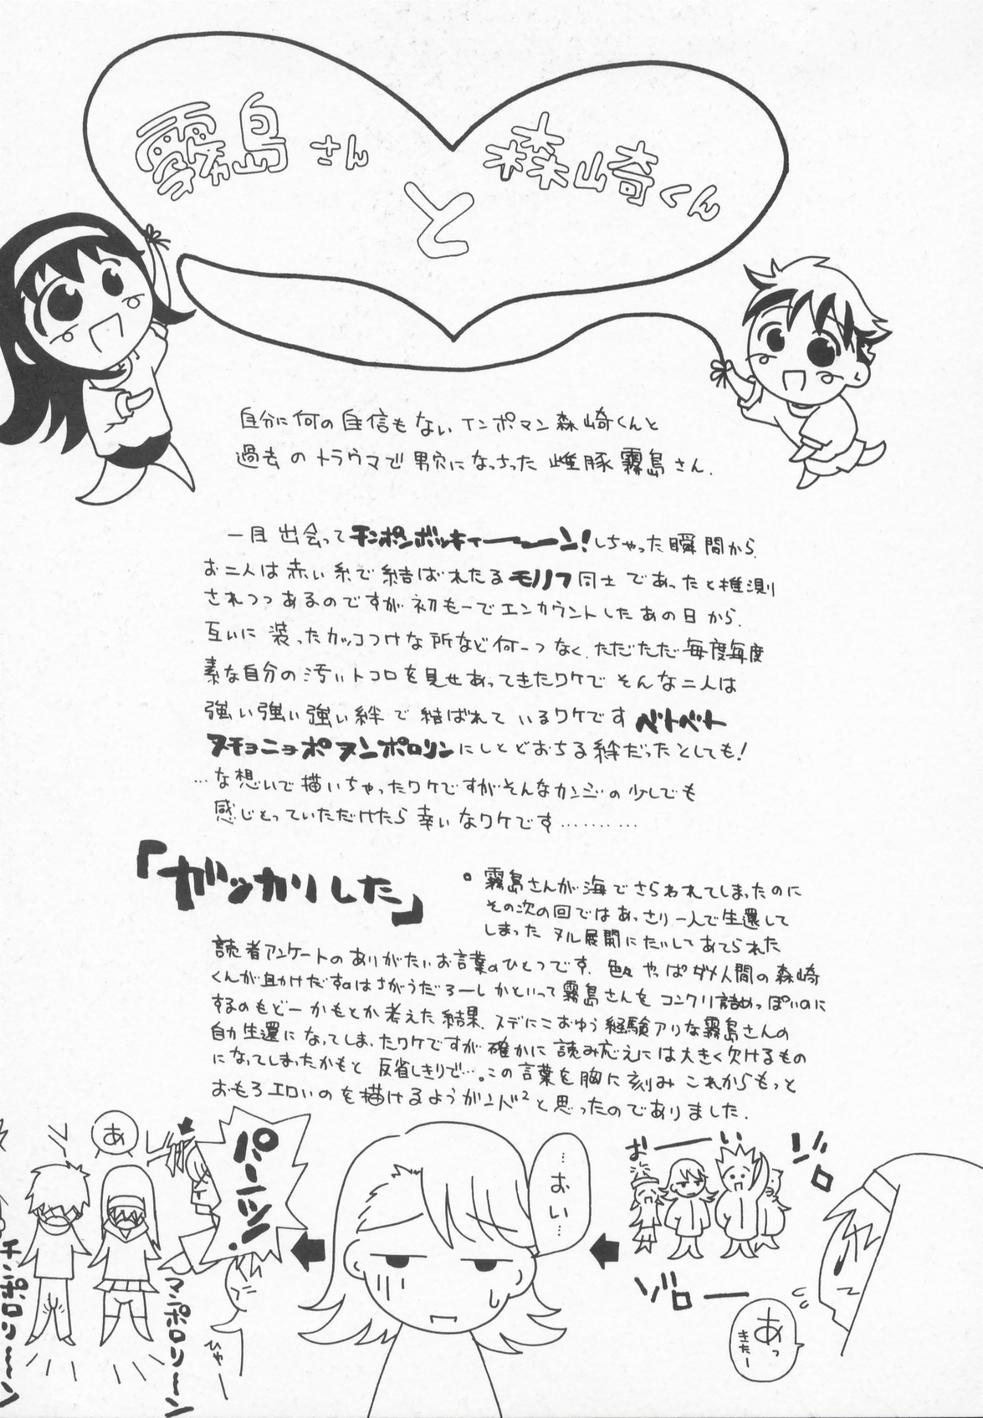 霧島さん
と
森崎くん
自分に何の自信もないインポマン森崎くんと
過去のトラウマで男穴になっちった雌豚霧島さん.
一目出会ってチンポンボッキィーーーン!しちゃった瞬間から.
お二人は赤い糸で結ばれたるモノノフ同士であったと推測
されつつあるのですが初もーでエンカウントしたあの日から.
互いに装ったカッコつけな所など何一つなく.ただただ毎度毎度
素な自分の汚いトコロを見せあってきたワケでそんな二人は
強い強い強い絆で結ばれているワケです ベトベト
ヌチョニョポヌンポロリンにしとどおちる絆だったとしても!
…な想いで描いちゃったワケですがそんなカンジの少しでも
感じとっていただけたら幸いなワケです………
「ガッカリした」
。霧島さんが海でさらわれてしまったのに
その次の回ではあっさり一人で生還して
しまったヌル展開にたいしてあてられた
読者アンケートのありがたいお言葉のひとつです.色々やっぱダメ人間の森崎
くんが助けだすのはさがうだろーしかといって霧島さんをコンクリ詰めっぽいのに
するのもどーかもとか考えた結果.スデにこおゆう経験アリな霧島さんの
自力生還になってしまったワケですが確かに読み応えには大きく欠けるもの
になってしまったかもと反省しきりで…。この言葉を胸に刻みこれからもっと
おもろエロいのを描けるようガンバ²と思ったのでありました.
おーーい
ゾロ
ゾロー
あっ
きたー
…おい…
パーンツ!
ひゃー
あ
マンポロリーーン
チンポロリーーン